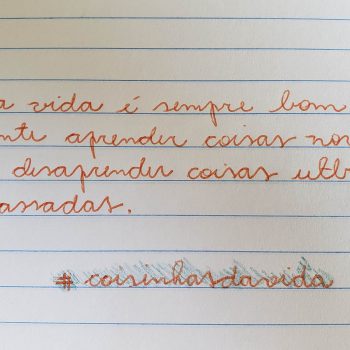 a vida é sempre bom
aprender coisas nov
desaprender coisas ult
assadas.
# coisinhasdavida